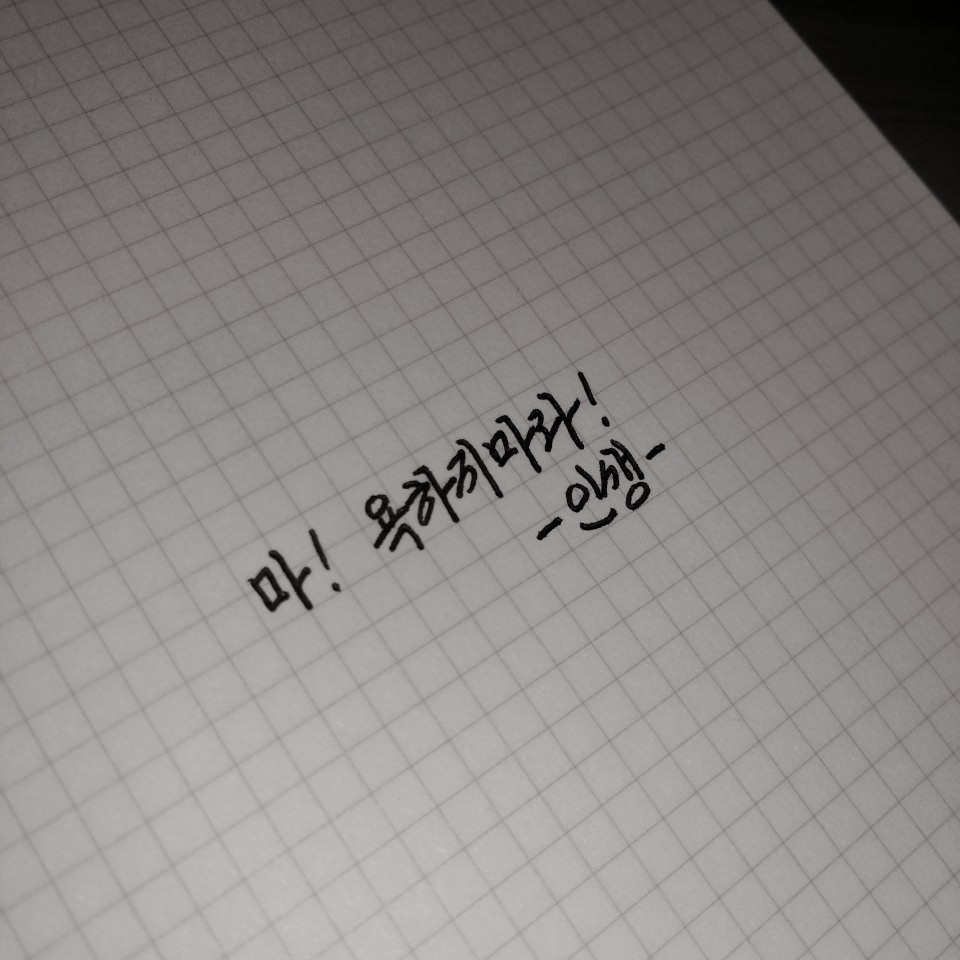 마! 욕하지마라!
-인생-